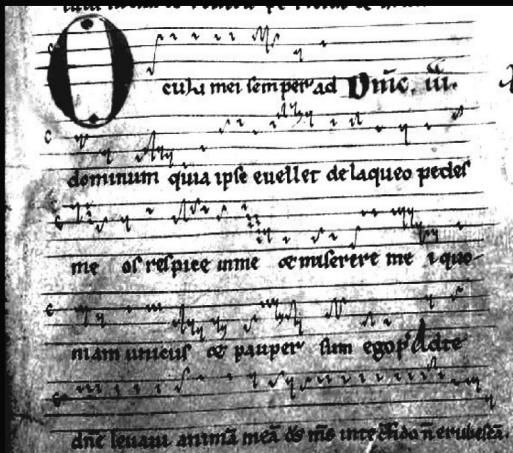 Oculi mei semper ad Dnic. iii.
dominum quia ipse evellet de laqueo pedes
me os respice inme & miserere me i quo-
niam unicus & pauper sum ego p͛ Adte
dnē levavi animā meā d̄s m̄s inte cōfido n̄ erubescā.